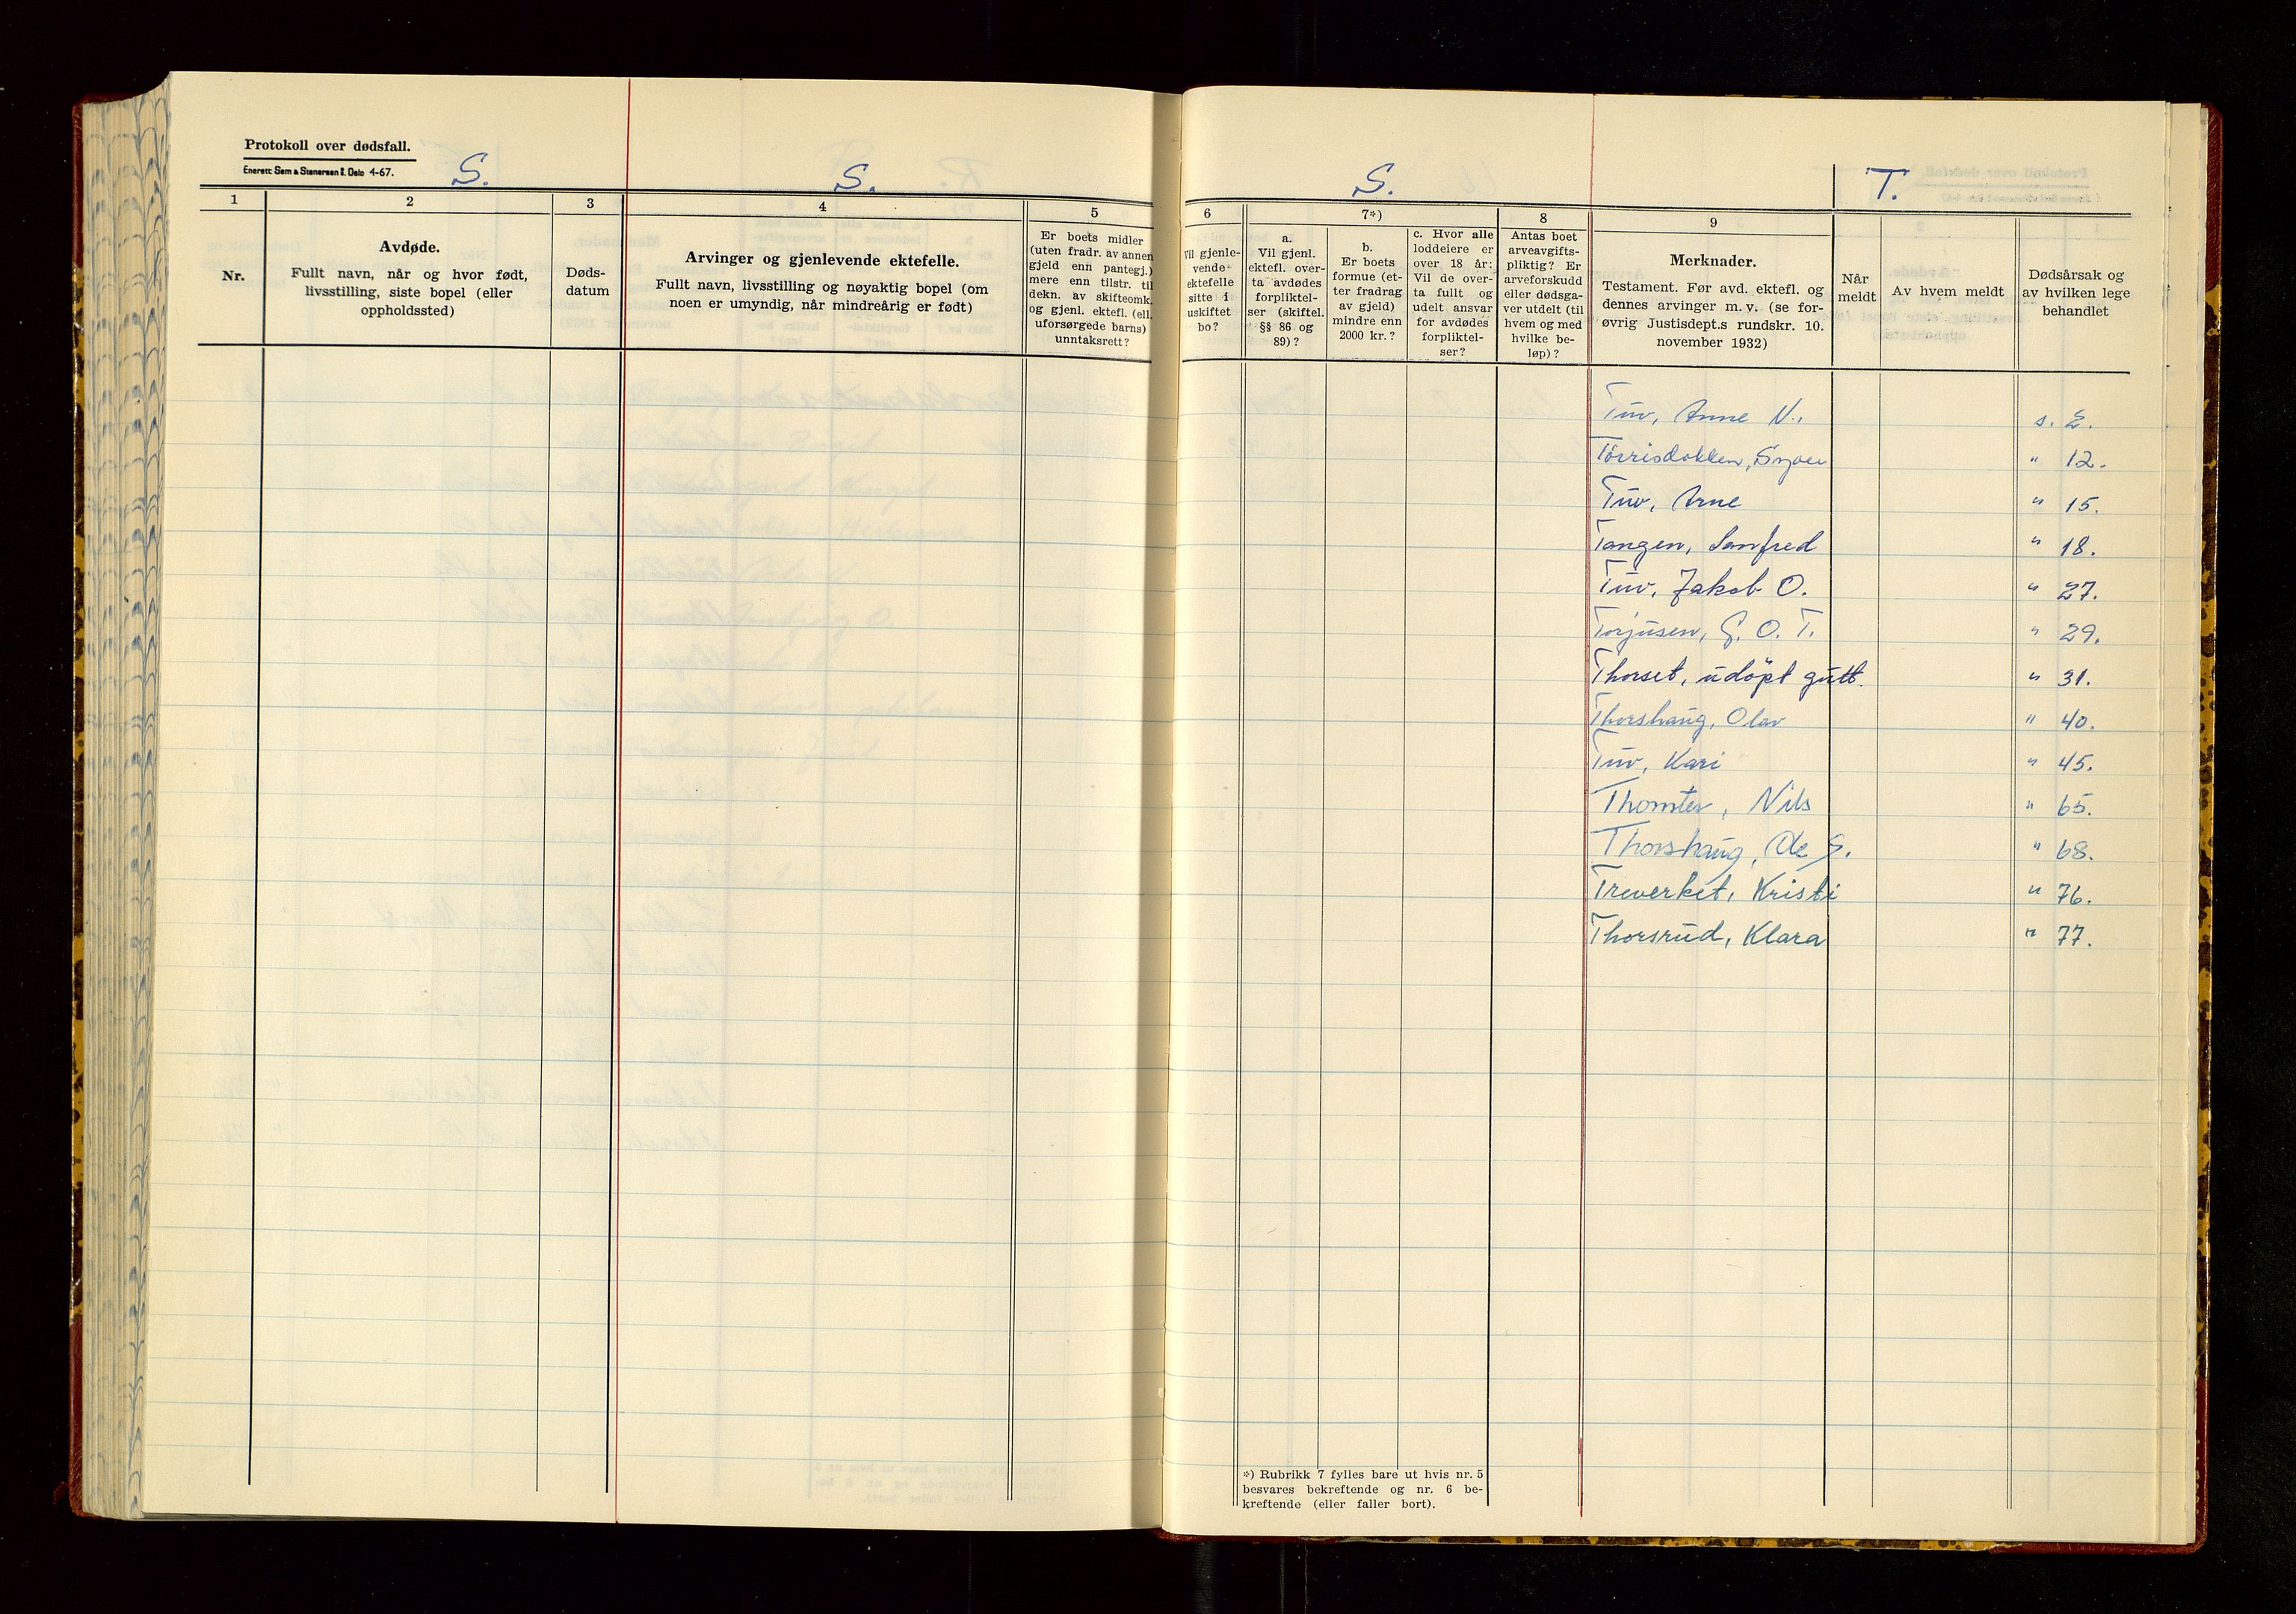 Protokoll over dødsfall.
Enerett: Sem & Stenersen A/S, Oslo 4-67.
S.
S.
1
2
3
4
5
Nr.
Avdøde.
Fullt navn, når og hvor født,
livsstilling, siste bopel (eller
oppholdssted)
Døds-
datum
Arvinger og gjenlevende ektefelle.
Fullt navn, livsstilling og nøyaktig bopel (om
noen er umyndig, når mindreårig er født)
Er boets midler
(uten fradr. av annen
gjeld enn pantegj.)
mere enn tilstr. til
dekn. av skifteomk.
og gjenl. ektef. (ell.
uforsørgede barns)
unntaksrett?
S.
T.
6
7*)
8
9
Vil gjenle-
vende
ektefelle
sitte i
uskiftet
bo?
a.
Vil gjenl.
ektefl. over-
ta avdødes
forpliktel-
ser (skiftel.
§§ 86 og
89)?
b.
Er boets
formue (et-
ter fradrag
av gjeld)
mindre enn
2000 kr.?
c. Hvor alle
loddeiere er
over 18 år:
Vil de over-
ta fullt og
udelt ansvar
for avdødes
forpliktel-
ser?
Antas boet
arveavgifts-
pliktig? Er
arveforskudd
eller dødsga-
ver utdelt (til
hvem og med
hvilke be-
løp)?
Merknader.
Testament. Før avd. ektefl. og
dennes arvinger m.v. (se for-
øvrig Justisdept.s rundskr. 10.
november 1932)
Når
meldt
Av hvem meldt
Dødsårsak og
av hvilken lege
behandlet
Tuv, Anne N., s. 2.
Torrisdokken, " 12.
Tuv, Arne " 15.
Tangen, Sanfred " 18.
Tuv, Jakob O. " 27.
Torjusen, G. O. T. " 29.
Thorset, udöpt gutt. " 31.
Thorshaug, Olav " 40.
Tuv, Kari " 45.
Thomter, Nils " 65.
Thorshaug, Ole S. " 68.
Treverket, Kristi " 76.
Thorsrud, Klara " 77.
*) Rubrikk 7 fylles bare ut hvis nr. 5
besvares bekreftende og nr. 6 be-
kreftende (eller faller bort).